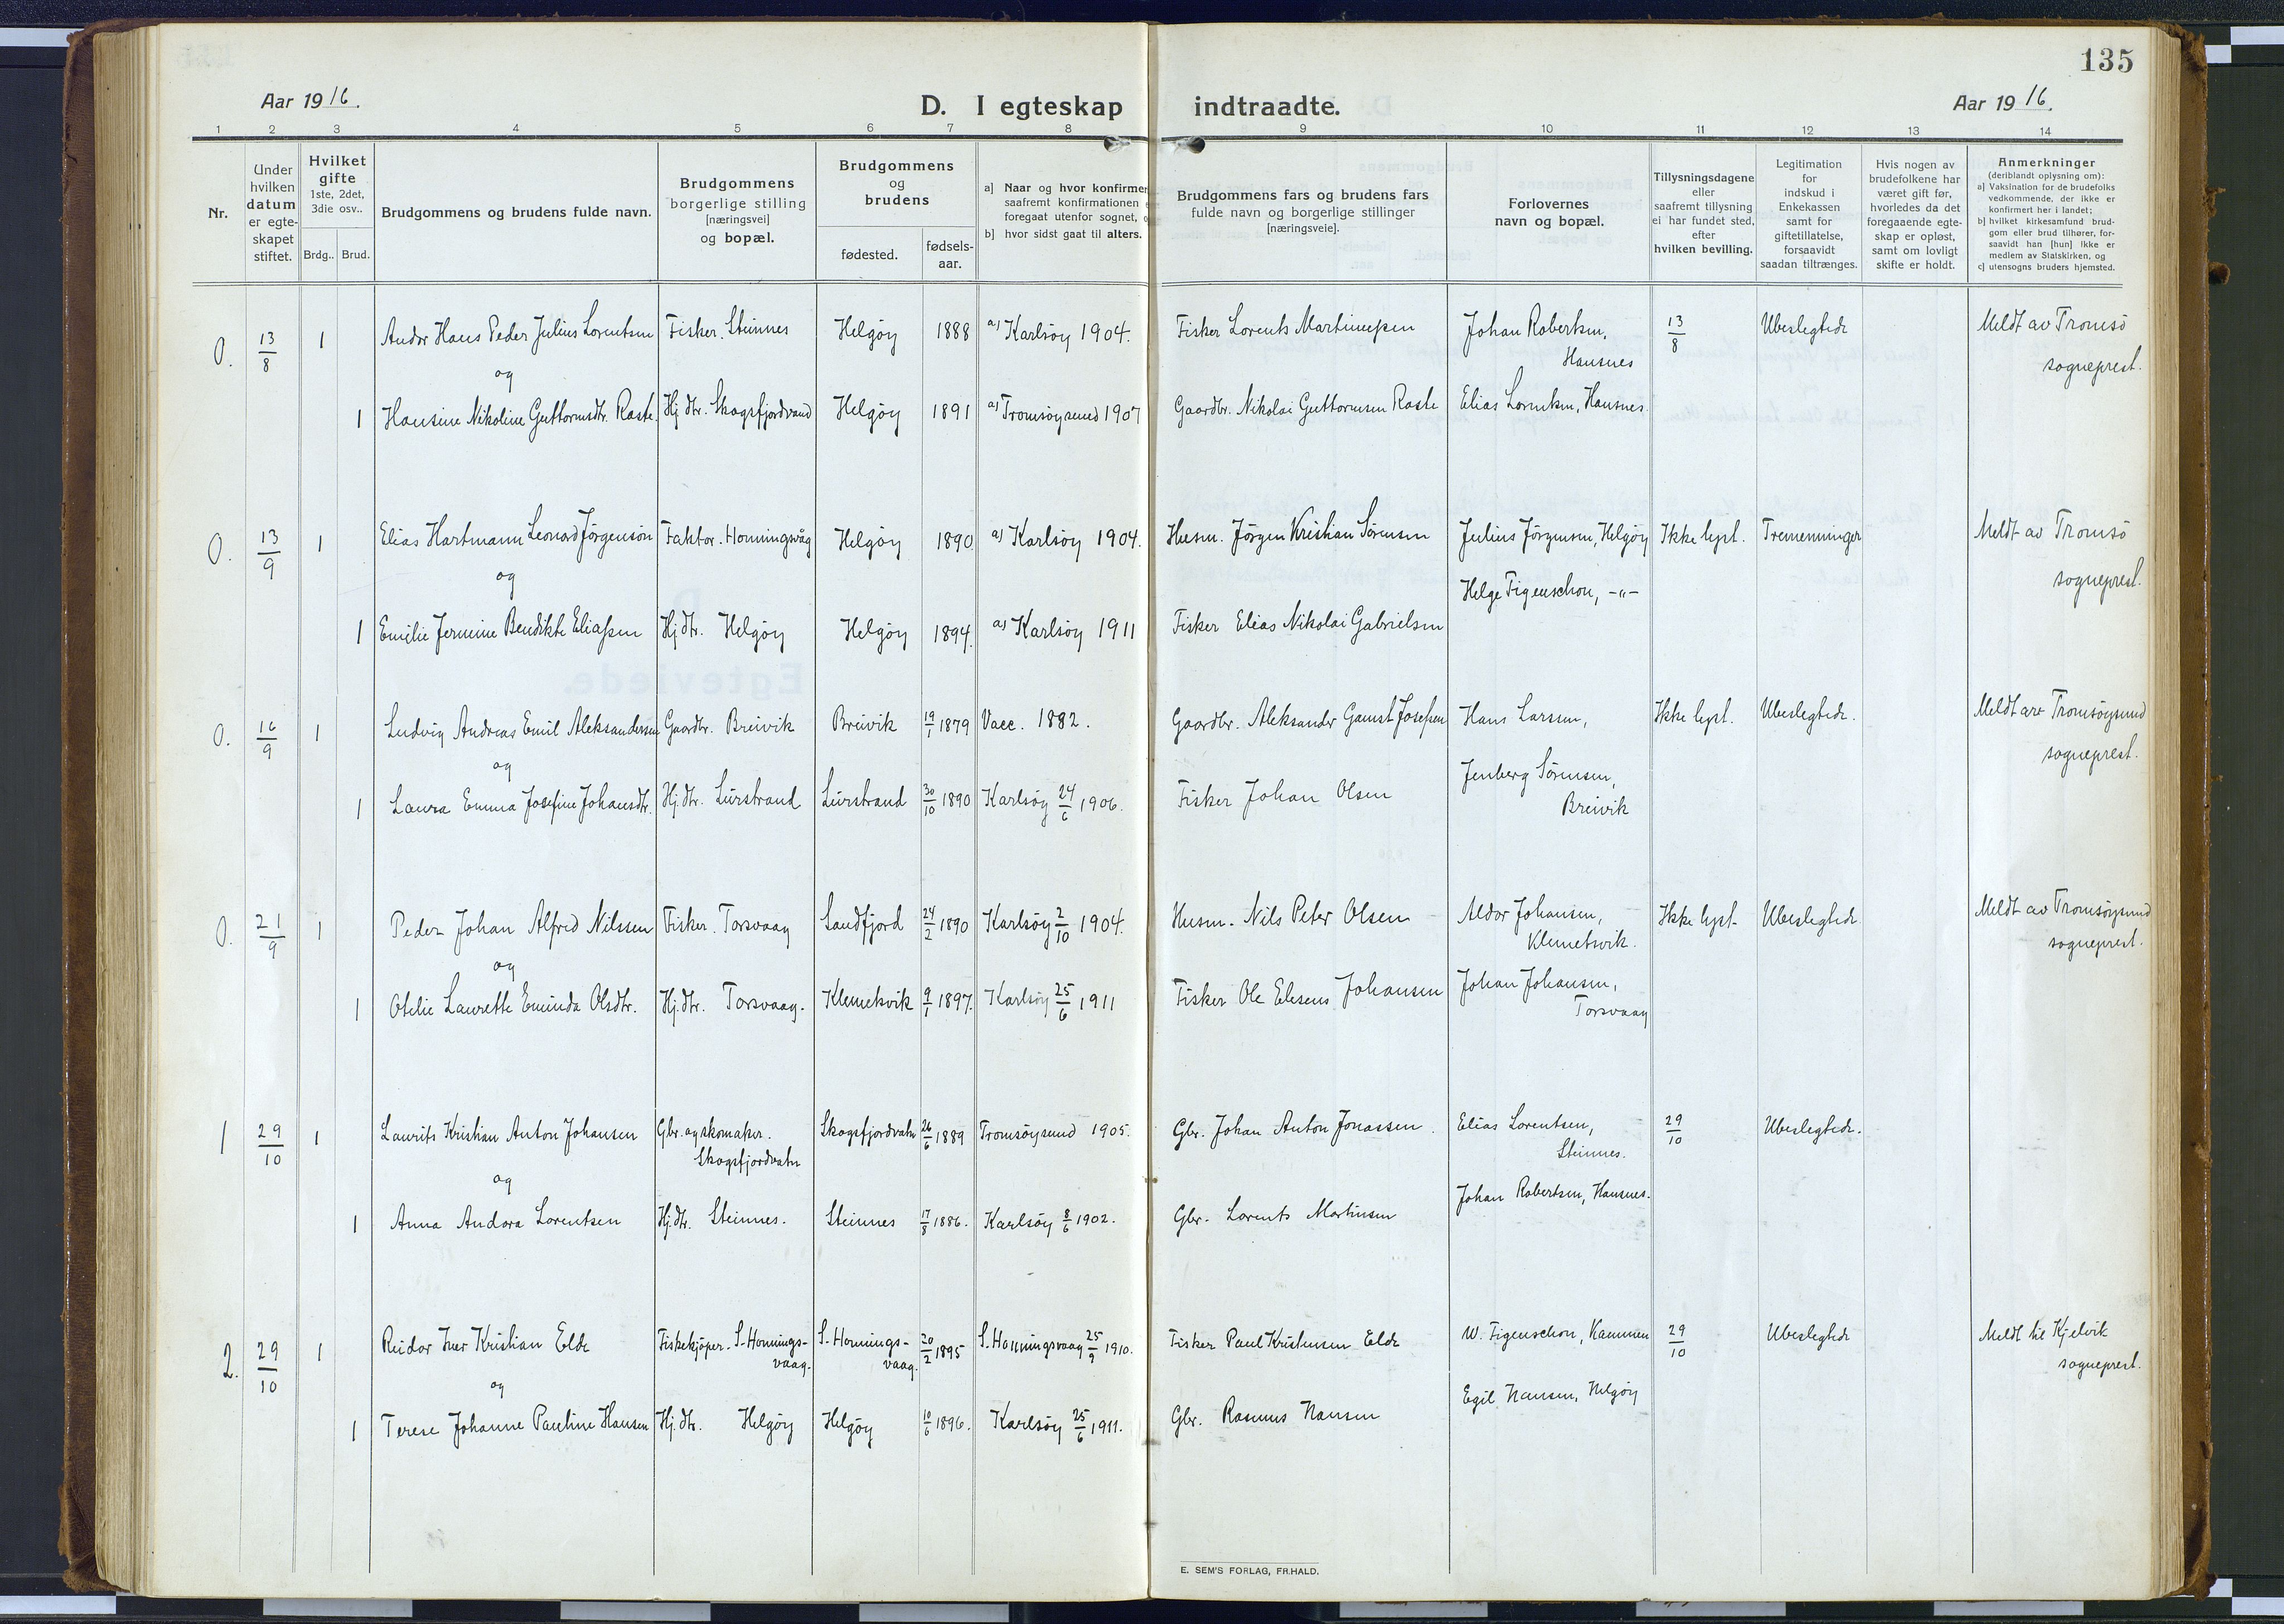 135
Aar 1916.
D. I egteskap indtraadte.
Aar 1916.
1 2 3 4 5 6 7 8 9 10 11 12 13 14
Nr.
Under
hvilken
datum
er egte-
skapet
stiftet.
Hvilket
gifte
1ste, 2det,
3die osv..
Brdg.. Brud.
Brudgommens og brudens fulde navn.
Brudgommens
borgerlige stilling
[næringsvei]
og bopæl.
Brudgommens
og
brudens
fødested.
fødsels-
aar.
a] Naar og hvor konfirmer
saafremt konfirmationen
foregaat utenfor sognet,
b] hvor sidst gaat til alters.
Brudgommens fars og brudens fars
fulde navn og borgerlige stillinger
[næringsveie].
Forlovernes
navn og bopæl.
Tillysningsdagene
eller
saafremt tillysning
ei har fundet sted,
efter
hvilken bevilling.
Legitimation
for
indskud i
Enkekassen
samt for
giftetillatelse,
forsaavidt
saadan tiltrænges.
Hvis nogen av
brudefolkene har
været gift før,
hvorledes da det
foregaaende egte-
skap er opløst,
samt om lovligt
skifte er holdt.
Anmerkninger
(deriblandt oplysning om):
a] Vaksination for de brudefolks
vedkommende, der ikke er
konfirmert her i landet;
b] hvilket kirkesamfund brud-
gom eller brud tilhører, for-
saavidt han [hun] ikke er
medlem av Statskirken, og
c] utensogns bruders hjemsted.
0. 13/8 1 Andor Hans Peder Julius Lorentsen Fisker. Steinnes Helgøy 1888 a) Karlsøy 1904. Fisker Lorents Martinussen Johan Robertsen, 13/8 Ubeslegtede Meldt av Tromsö
Hansnes sogneprest.
og
1 Hansine Nikoline Guttormsdtr. Raste. Hj.dtr. Skogsfjordvand Helgøy 1891 a) Tromsøysund 1907 Gaardbr. Nikolai Guttormsen Raste Elias Lorentsen, Hansnes.
0. 13/9 1 Elias Hartmann Leonard Jørgensen Faktor. Honningsvåg Helgøy 1890 a) Karlsøy 1904. Husm. Jørgen Kristian Sörensen Julius Jørgensen, Helgøy Ikke lyst. Tremenninger Meldt av Tromsö
sogneprest.
og Helge Figenschou, -"-
1 Emilie Jermine Bendikte Eliassen Hj.dtr. Helgøy Helgøy 1894. a) Karlsøy 1911 Fisker Elias Nikolai Gabrielsen
0. 16/9 1 Ludvig Andreas Emil Aleksandersen Gaardbr. Breivik Breivik 19/1 1879 Vacc. 1882. Gaardbr. Aleksander Gamst Josefsen Hans Larssen, Ikke lyst. Ubeslegtede. Meldt av Tromsøysund
sogneprest.
og Jenberg Sörensen,
1 Laura Emma Josefine Johansdtr. Hj.dtr. Lurstrand Lurstrand 30/10 1890 Karlsøy 24/6 1906. Fisker Johan Olsen Breivik
0. 21/9 1 Peder Johan Alfred Nilssen Fisker. Torsvaag Sandfjord 24/2 1890 Karlsøy 2/10 1904. Husm. Nils Peter Olsen Aldor Johansen, Ikke lyst. Ubeslegtede Meldt av Tromsøysund
Klemetsvik. sogneprest.
og Johan Johansen,
1 Otelie Laurette Eminda Olsdtr. Hj.dtr. Torsvaag. Klemetsvik 9/1 1897. Karlsøy 25/6 1911 Fisker Ole Elesens Johansen Torsvaag
1 29/10 1 Laurits Kristian Anton Johansen Gbr. og skomaker. Skogsfjordvatn 26/6 1889 Tromsøysund 1905. Gbr. Johan Anton Jonassen. Elias Lorentsen, 29/10 Ubeslegtede.
Skogsfjordvatn Steinnes.
og Johan Robertsen, Hansnes.
1 Anna Andora Lorentsen Hj.dtr. Steinnes. Steinnes 17/8 1886. Karlsøy 8/6 1902. Gbr. Lorents Martinsen
2. 29/10 1 Reidar Iver Kristian Elde Fiskekjøper. S-Honnings- S.-Honnings- 20/2 1895 S.Honningsvaag 25/9 1910. Fisker Paul Kristensen Elde W. Figenschou, Kammen 29/10 Ubeslegtede Meldt til Kjelvik
vaag. vaag. sogneprest.
og Egil Hansen, Helgøy
1 Terese Johanne Pauline Hansen Hj.dtr. Helgøy Helgøy 10/6 1896. Karlsøy 25/6 1911. Gbr. Rasmus Hansen
E. SEM'S FORLAG, FR.HALD.